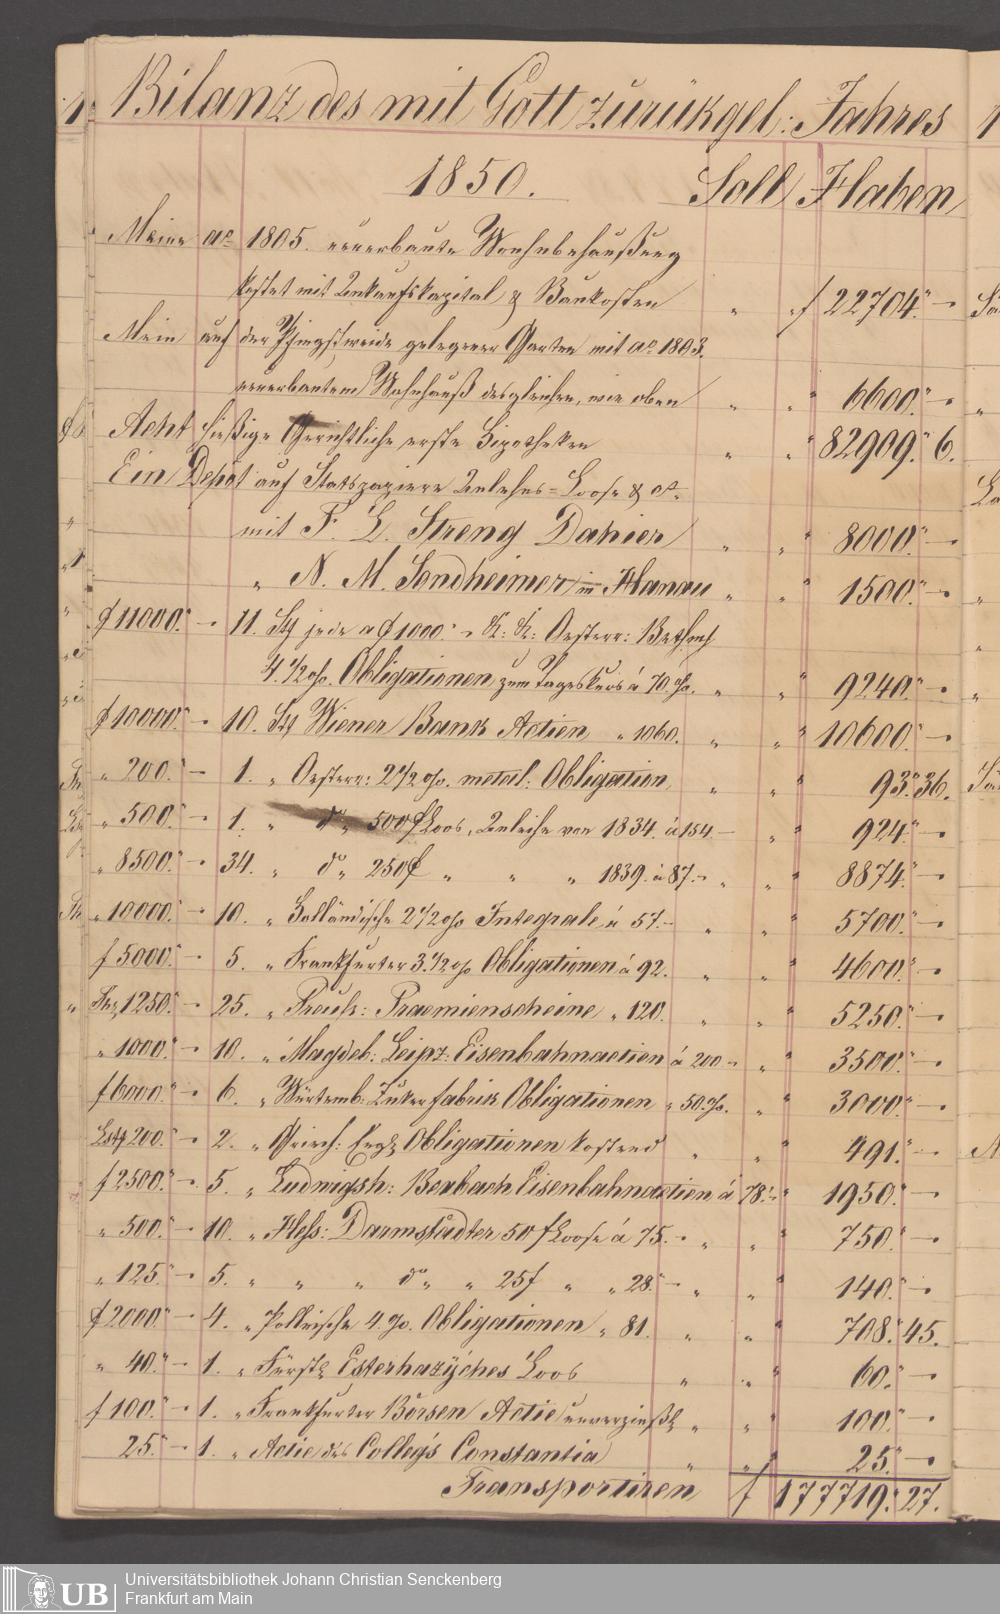 1. Bilanz des mit Gott zurükgel: Jahres
1850. Soll Haben
Meine ao 1805. neuerbaute Wohnbehaußung
kostet mit Ankaufskapital & Baukosten " " f 22704." -
Mein auf der Pfingstweide gelegener Garten mit ao 1803.
neuerbautem Wohnhauß desgleichen, wie oben " " " 6600." -
Acht hießige Gerichtliche erste Hipotheken " " " 82909." 6.
Ein Depôt auf Statspapiere Anlehns=Loose & ct.
mit F. L. Streng Dahier " " " 8000." -
" N. M. Sondheimer in Hanau " " " 1500." -
f 11000." - 11. Stk jede a f 1000." - K: K: Oesterr: Bethm
4. 1/2 o/o. Obligationen zum Tageskurs á 70. o/o. " " " 9240." -
f 10000." - 10. Stk Wiener Bank Actien " 1060. " " " 10600." -
" 200." - 1. " Oesterr: 2 1/2 o/o. metal: Obligation " " " 93." 36.
" 500." - 1. " do " 500 f Loos, Anleihe von 1834. á 154 - " " 924." -
" 8500." - 34. " do " 250 f " " " 1839. á 87. - " " " 8874." -
" 10000." - 10. " Holländische 2 1/2 o/o Integrale á 57. - " " " 5700." -
f 5000." - 5. " Frankfurter 3. 1/2 o/o Obligationen á 92. " " " 4600." -
Thlr 1250." - 25. " Preuss: Praemienscheine " 120. " " " 5250." -
" 1000." - 10. " Magdeb: Leipz: Eisenbahnactien á 200 - " " 3500." -
f 6000." - 6. " Würtemb: Zukerfabrik Obligationen " 50. o/o. " " 3000." -
Lstg 200." - 2. " Griech: Engl Obligationen kostend " " " 491." -
f 2500." - 5. " Ludwigsh: Bexbach Eisenbahnactien á 78. - " 1950." -
" 500." - 10. " Hess: Darmstädter 50 f Loose á 75. - " " " 750." -
" 125." - 5. " " " do " " 25 f " " 28." - " " " 140." -
f 2000." - 4. " Pollnische 4. o/o. Obligationen " 81. " " " 708." 45.
" 40." - 1. " Fürstl Esterhazÿsches Loos " " " 60." -
f 100." - 1. " Frankfurter Börsen Actie unverzinßl " " " 100." -
25." - 1. " Actie des Colleg's Constantia " " " 25." -
Transportiren f 177719." 27.
UB Universitätsbibliothek Johann Christian Senckenberg
Frankfurt am Main